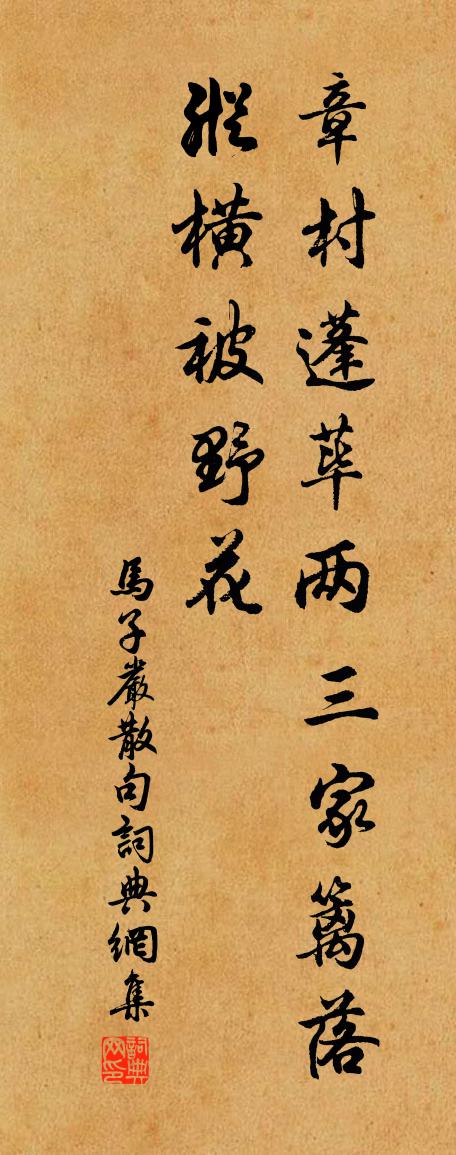 章村蓬荜两三家篱落
纵横被野花
馬子嚴散句詞典網集
詞典网印